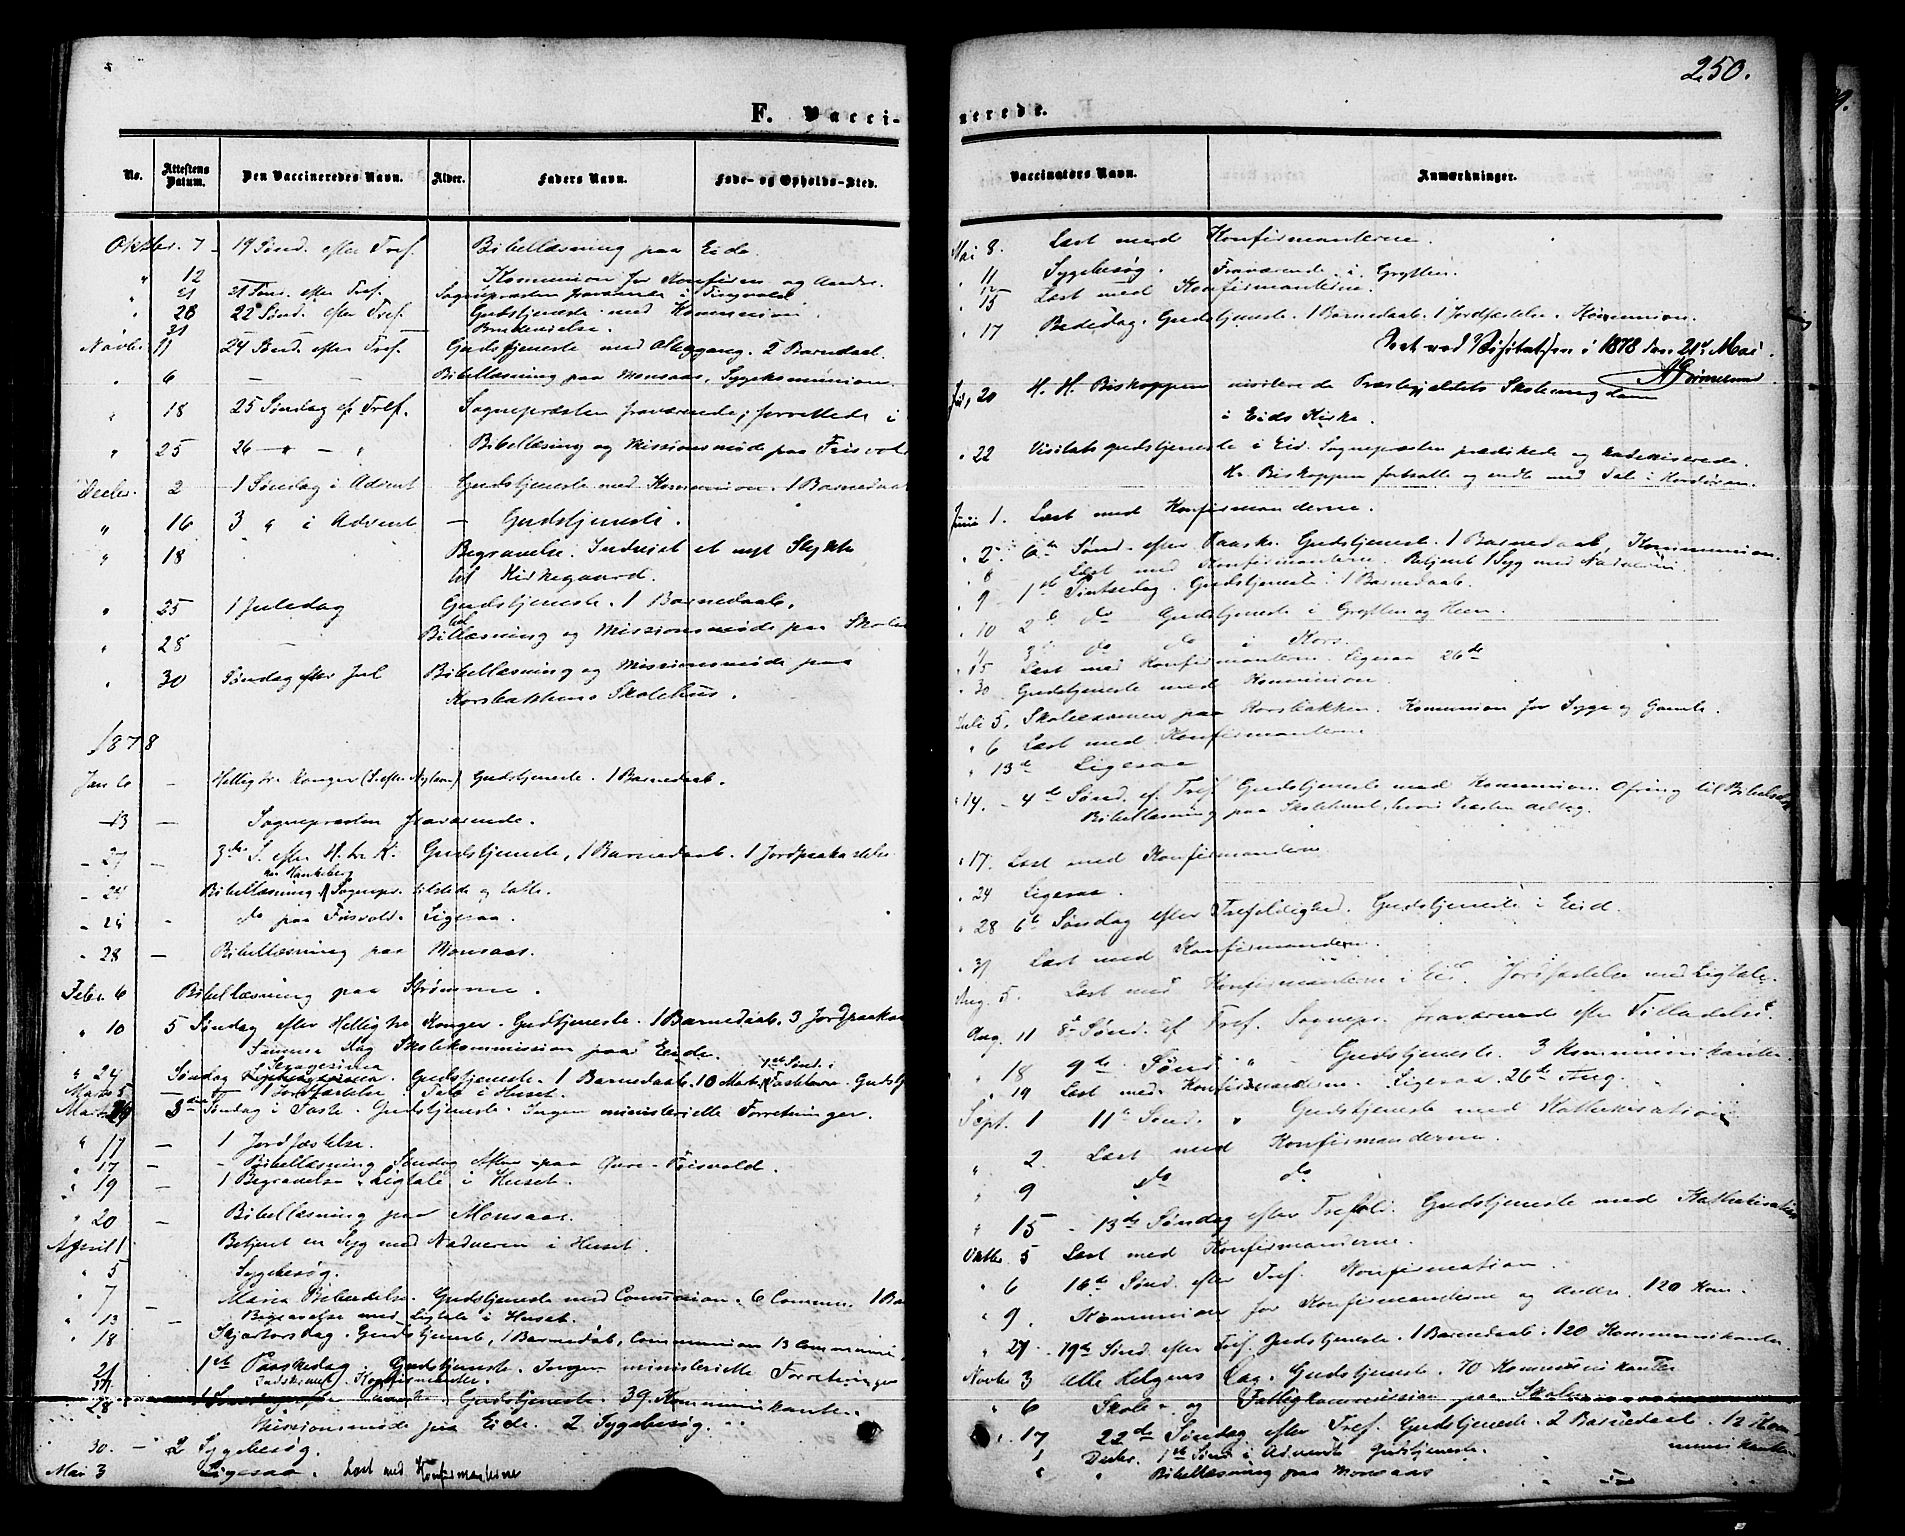 250.
F. Vacci-
nerede.
No.
Attestens Datum.
Den Vaccineredes Navn.
Alder.
Faders Navn.
Føde- og Opholds-Sted.
Vaccinatørs Navn.
Anmærkninger.
Oktbr. 7 - 19 Sønd. efter Tref. Bibellæsning paa Eide.
" 12 Kommunion for Konfirm. og Andre
" 21 21 Sønd. efter Tref. Sognepræsten fraværende i
" 28 22 Sønd. efter Tref. Gudstjeneste med Kommunion.
31 Brudevielse.
Novbr. 11 24 Sønd. efter Tref. Gudstjeneste med Altergang. 2 Barnedaab.
" 6 — — Bibellæsning paa Monsaas. Sygekommunion.
" 18 25 Søndag ef Tref. Sognepræsten fraværende, forrettede i
" 25 26 — " — " Bibellæsning og Missionsmøde paa Frisvold
Decbr. 2 1 Søndag i Advent Gudstjeneste med Kommunion. 1 Barnedaab
" 16 3 " i Advent — Gudstjeneste.
" 18 Begravelse. Indviet et nyt Stykke
til Kirkegaard.
" 25 1 Juledag Gudstjeneste. 1 Barnedaab.
" 28 — Bibellæsning og Missionsmøde paa
" 30 Søndag efter Jul Bibellæsning og Missionsmøde paa
Korsbakkens Skolehus.
1878
Jan 6 — Hellig tr. Konger (S. efter Nytaar) Gudstjeneste. 1 Barnedaab.
—13 — Sognepræsten fraværende.
- 27 — 3de S. efter H. tr. K. Gudstjeneste, 1 Barnedaab. 1 Jordpaakastelse
- 24 Bibellæsning Sognepr. tilstede og talte.
- do paa Frisvold. Ligesaa.
" 28 — Bibellæsning paa Monsaas.
Febr. 6 Bibellæsning paa Strømme.
" 10 5 Søndag efter Hellig tre Konger. Gudstjeneste. 1 Barnedaab. 3 Jordpaakas
Samme Dag Skolekommission paa Eide.
" 24 Søndag Gudstjeneste. 1 Barnedaab. 10 Gudstj
Marts 5 — Jordfæstelse. Tale i Huset.
Marts 3die Søndag i Faste. Gudstjeneste. Ingen ministerielle Forretninger.
" 17 — 1 Jordfæstelse.
" 17 — - Bibellæsning Søndag Aften paa Øvre-Frisvold.
" 19 — 1 Begravelse. Ligtale i Huset.
" 20 — Bibellæsning paa Monsaas.
April 1 Betjent en Syg med Nadveren i Huset.
" 5 Sygebesøg.
" 7 — Maria Bebudelse. Gudstjeneste med Communion. 6 Commun. 1 Bar
" 13 — Begravelse med Ligtale i Huset.
" 18 Skjærtorsdag. Gudstjeneste, 1 Barnedåb, Communion 13 Communi.
21 1ste Paaskedag. Gudstjeneste. Ingen ministerielle Forretninger
Indskrevet Konfirmander.
28 Gudstjeneste. 39 Kommunikanter.
Missionsmøde paa Eide. 2 Sygebesøg.
30. — 2 Sygebesøg.
Mai 3 Ligesaa. Læst med Konfirmanterne
Mai 8. Læst med Konfirmanterne.
" 11 Sygebesøg. Fraværende i Grytten.
" 15 Læst med Konfirmanterne.
" 17 Bededag. Gudstjeneste. 1 Barnedaab. 1 Jordfæstelse. Kommunion.
Seet ved Visitatsen i 1878 den 21de Mai.
20 H. H. Biskoppen visiterede Præstegjældets Skoleungdom
i Eids Kirke.
" 22 Visitatsgudstjeneste i Eid. Sognepræsten prædikede og katekiserede.
Hr. Biskoppen fortsatte og endte med Tale i Kordøren.
Juni 1. Læst med Konfirmanderne.
" 2. 6te Sønd. efter Paaske. Gudstjeneste. 1 Barnedaab Kommunion.
" 8 — Læst med Konfirmanterne. Betjent 1 Syg med Nadveren
" 9 — 1ste Pintsedag. Gudstjeneste. 1 Barnedaab.
" 10 2d do Gudstjeneste i Grytten og Heen.
11 3d do do i Kors.
" 15 Læst med Konfirmanterne. Ligesaa 26de
" 30 Gudstjeneste med Kommunion
Juli 5. Skoleexamen paa Korsbakken. Kommunion for Syge og Gamle.
" 6 Læst med Konfirmanterne
" 13de Ligesaa
" 14. — 4de Sønd. ef. Tref. Gudstjeneste med Kommunion. Ofring til Bibelselsk
Bibellæsning paa Skolehuset, hvori Præsten deltog.
" 17. Læst med Konfirmanderne
" 24 Ligesaa.
" 28 6te Søndag efter Trefoldighed. Gudstjeneste i Eid.
" 31 Læst med Konfirmanderne.
Aug. 5. Læst med Konfirmanterne i Eid. Jordfæstelse med Ligtale.
Aug. 11 8d Sønd. ef Tref. Sognepr. fraværende efter Tilladelse.
" 18 9de Sønd " - Gudstjeneste. 3 Kommunikanter.
" 19 Læst med Konfirmanderne. Ligesaa 26de Aug.
Sept. 1 11te Sønd. " Gudstjeneste med Kathekisation
" 2. Læst med Konfirmanderne.
" 9 do do
" 15 - 13de Søndag efter Trefold. Gudstjeneste med Kathekisation
Oktbr. 5 Læst med Konfirmanderne.
" 6 16de Sønd. efter Tref. Konfirmation.
" 9. Kommunion for Konfirmanterne og Andre. 120 Kom.
" 27 19de Sønd. efter Tref. Gudstjeneste. 1 Barnedaab. 120 Kommunikanter
Novbr. 3 Alle Helgens Dag. Gudstjeneste. 70 Kommunikanter
" 6 Skole- og Fattigkommission paa Skolen
" 17 22de Søndag efter Tref. Gudstjeneste. 2 Barnedaab. 12 Kom-
munikanter
" 1 Decbr. 1ste Sønd i Advent. Gudstjeneste.
" " Bibellæsning paa Monsaas